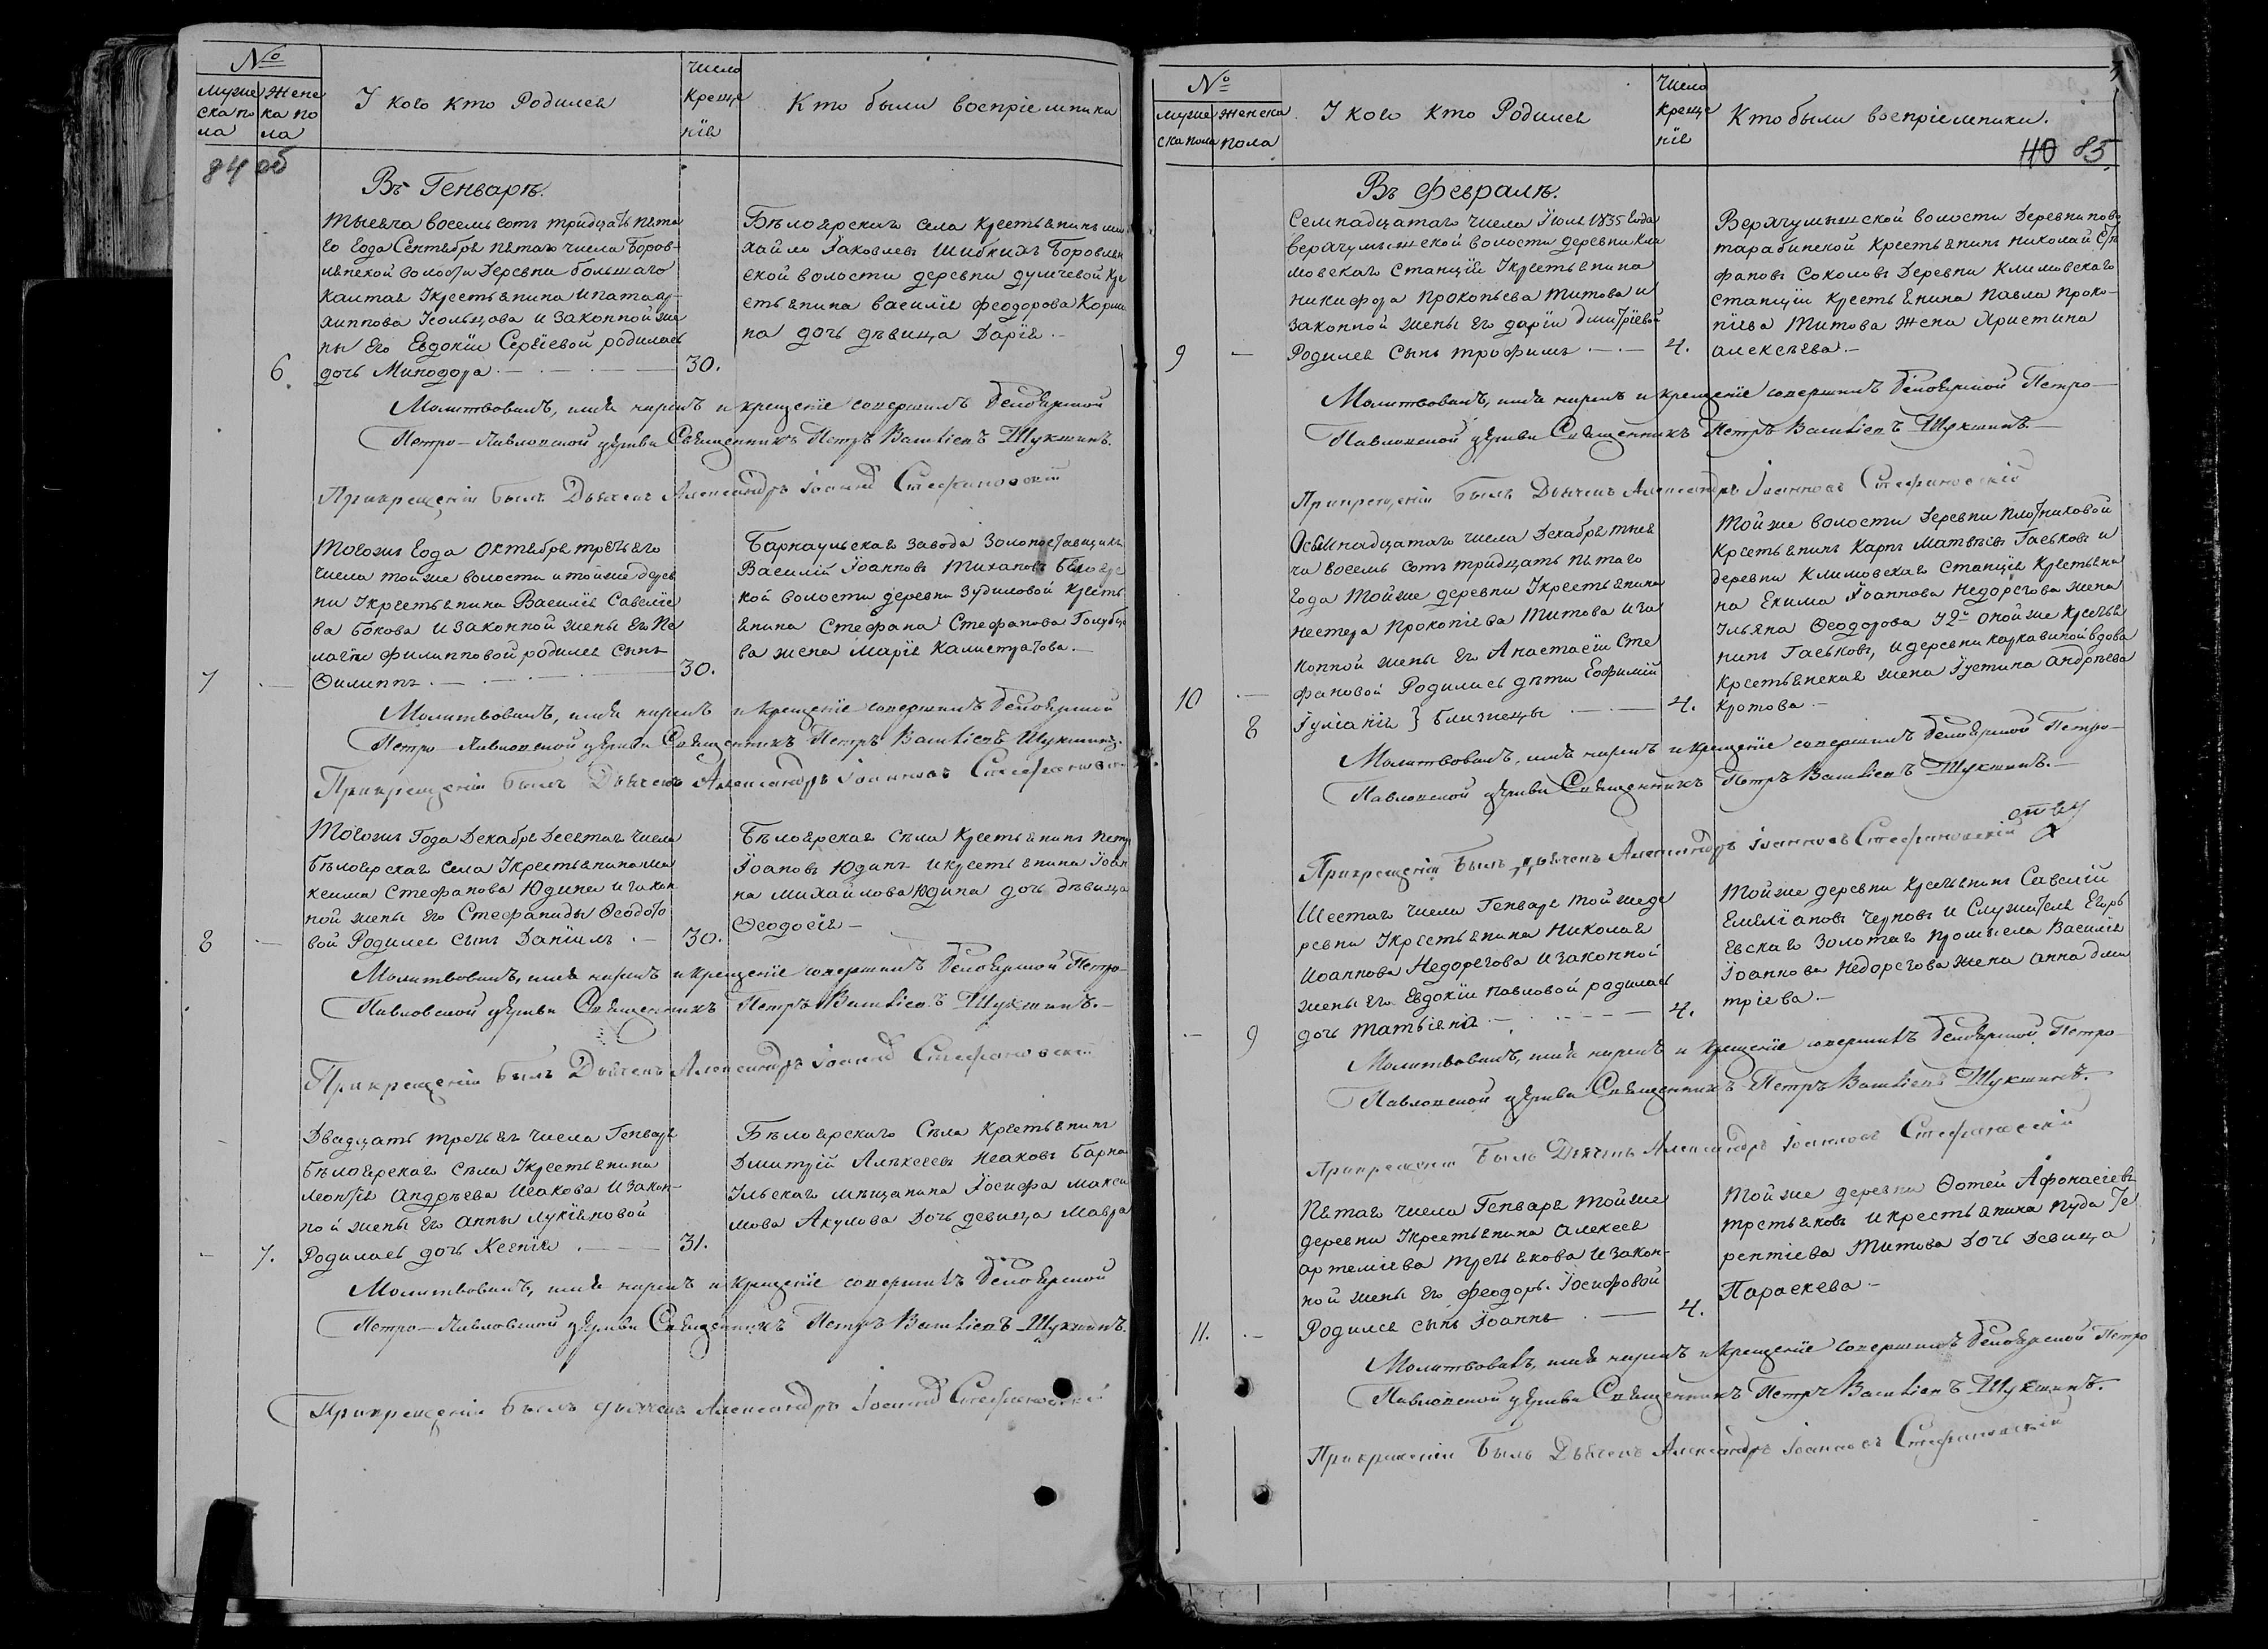 №
муже
ска по
ла
Жене
ка по
ла
У кого кто Родился
число
креще
нія
Кто были воспріемники
84 об
Въ Генварѣ.
тысяча восемь сотъ тридцать пята
го года Сентября пятаго числа Боров-
лянской волости Деревни большаго
калтая Укрестьянина Ипата ар-
хиппова Усольцова и законной же
ны Его Евдокіи Сергіевой родилась
6. дочь Минодора 30.
Бѣлоярскаго села Крестьянинъ ми
хайло Іаковлевъ Шибкихъ Боровлян
ской волости деревни думчевой Кре
стьянина василія феодорова Корши
на дочь дѣвица Дарія
Молитвовалъ, имя нарекъ и крещеніе совершилъ Белоярской
Петро-Павловской церкви Священникъ Петръ Васильевъ Шукшинъ.
При крещеніи былъ Дьячекъ Александръ Іоанновъ Стефановскій
Тогожъ Года Октября третьяго
числа тойже волости итойже дерев
ни Укрестьянина Василія Савеліе
ва Бокова и законной жены Его Пе
лагіи филипповой родился сынъ
7 — Филиппъ 30.
Барнаульскаго завода
Василій Іоанновъ Тихановъ Белояр
кой волости деревни зудиловой Кресть
янина Стефана Стефанова Голубцо
ва жена Марія Калистратова.
Молитвовалъ, имя нарекъ и крещеніе совершилъ Белоярской
Петро-Павловской церкви Священникъ Петръ Васильевъ Шукшинъ.
При крещеніи былъ Дьячекъ Александръ Іоанновъ Стефановскій
Тогожъ Года Декабря Десятаго числа
Бѣлоярскаго села Укрестьянина ма
ксима Стефанова Юдина и закон
ной жены Его Стефаниды Феодото
8 — вой Родился сынъ Даніилъ — 30.
Бѣлоярскаго села Крестьянинъ петр
Іоановъ Юдинъ икрестьянина Іоан
на михайлова Юдина дочь дѣвица
Феодосія —
Молитвовалъ, имя нарекъ и крещеніе совершилъ Белоярской Петро-
Павловской церкви Священникъ Петръ Васильевъ Шукшинъ.
При крещеніи былъ Дьячекъ Александръ Іоанновъ Стефановскій
Двадцать третьяго числа Генваря
бѣлоярскаго села Укрестьянина
леонтія андрѣева Исакова и закон-
ной жены Его анны лукіяновой
— 7. Родилась дочь Ксенія 31.
Бѣлоярскаго Села Крестьянинъ
Дмитрій Алексеевъ Исаковъ барна
ульскаго мѣщанина Іосифа макси
мова Акулова Дочь девица Мавра
Молитвовалъ, имя нарекъ и крещеніе совершилъ Белоярской
Петро-Павловской церкви Священникъ Петръ Васильевъ Шукшинъ.
При крещеніи былъ дьячекъ Александръ Іоанновъ Стефановскій
№
муже
ска пола
женска
пола
У кого кто Родился
Число
креще
нія
Кто были воспріемники.
85
Въ Февралѣ.
Семнадцатаго числа Іюля 1835 года
верхчумышской волости деревни Кли
мовскаго станція Укрестьянина
никифора Прокопьева Титова и
законной жены Его даріи дмитріевой
9 — Родился сынъ трофимъ 4.
Верхчумышской волости Деревни ново
тарабинской Крестьянинъ николай Сте
фановъ Соколовъ Деревни Климовскаго
станція Крестьянина Павла Проко-
піева Титова жена Христина
алексѣева
Молитвовалъ, имя нарекъ и крещеніе совершилъ Белоярской Петро-
Павловской церкви Священникъ Петръ Васильевъ Шукшинъ.
При крещеніи былъ Дьячекъ Александръ Іоанновъ Стефановскій
Осьмнадцатаго числа Декабря тыся
ча восемь сотъ тридцать пятаго
года Тойже деревни Укрестьянина
нестера Прокопіева Титова и за
конной жены Его Анастасіи Сте
10 — фановой Родились дѣти Евфимій
8 Іуліанія } близнецы 4.
Тойже волости Деревни плотниковой
Крестьянинъ Карпъ Матвѣевъ Гаськовъ и
деревни Климовскаго станція Крестьяни
на Екима Іоаннова Недорезова жена
Ульяна Феодорова У 2го онойже Крестья
нинъ Гаськовъ, и деревни каркавиной вдова
Крестьянская жена Іустина андрѣева
Кротова
Молитвовалъ, имя нарекъ и крещеніе совершилъ Белоярской Петро-
Павловской церкви Священникъ Петръ Васильевъ Шукшинъ.
При крещеніи былъ дьячекъ Александръ Іоанновъ Стефановскій
Шестаго числа Генваря тойжеде
ревни Укрестьянина Николая
Иоаннова Недорезова и законной
жены Его Евдокіи павловой родилась
— 9 дочь татьяна 4.
Тойже деревни Крестьянинъ Савелій
Емеліановъ Черновъ и Служителя Егорь
евскаго золотаго промысла Василія
Іоаннова недорезова жена анна дми
тріева
Молитвовалъ, имя нарекъ и крещеніе совершилъ Белоярской Петро
Павловской церкви Священникъ Петръ Васильевъ Шукшинъ.
При крещеніи былъ Дьячекъ Александръ Іоанновъ Стефановскій
Пятаго числа Генваря тойже
деревни Укрестьянина алексея
артеміева третьякова и закон-
ной жены Его феодоры Іосифовой
11. — Родился сынъ Іоаннъ 4.
Тойже деревни Фотей Афонасіевъ
третьяковъ икрестьянина пуда Те
рентіева Титова Дочь Девица
Параскева —
Молитвовалъ, имя нарекъ и крещеніе совершилъ Белоярской Петро
Павловской церкви Священникъ Петръ Васильевъ Шукшинъ.
При крещеніи былъ Дьячекъ Александръ Іоанновъ Стефановскій